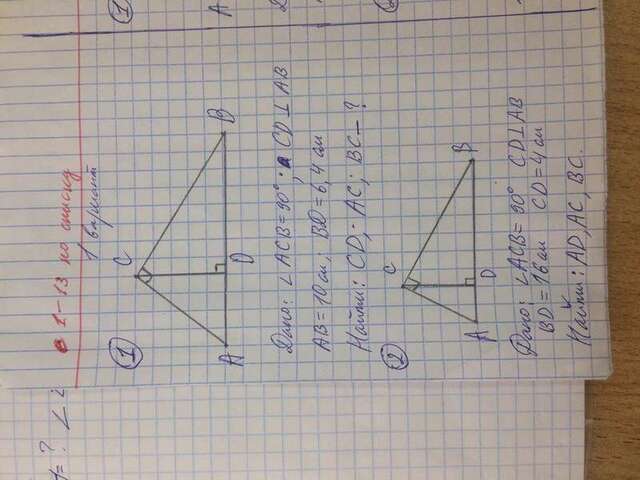 1 - 13 по списку
1 вариант
1
C
A
D
B
Дано: ∠ACB = 90°; CD ⊥ AB
AB = 10 см; BD = 6,4 см
Найти: CD; AC; BC - ?
2
C
A
D
B
Дано: ∠ACB = 90° CD ⊥ AB
BD = 16 см CD = 4 см
Найти: AD, AC, BC.
= ? ∠
1
A